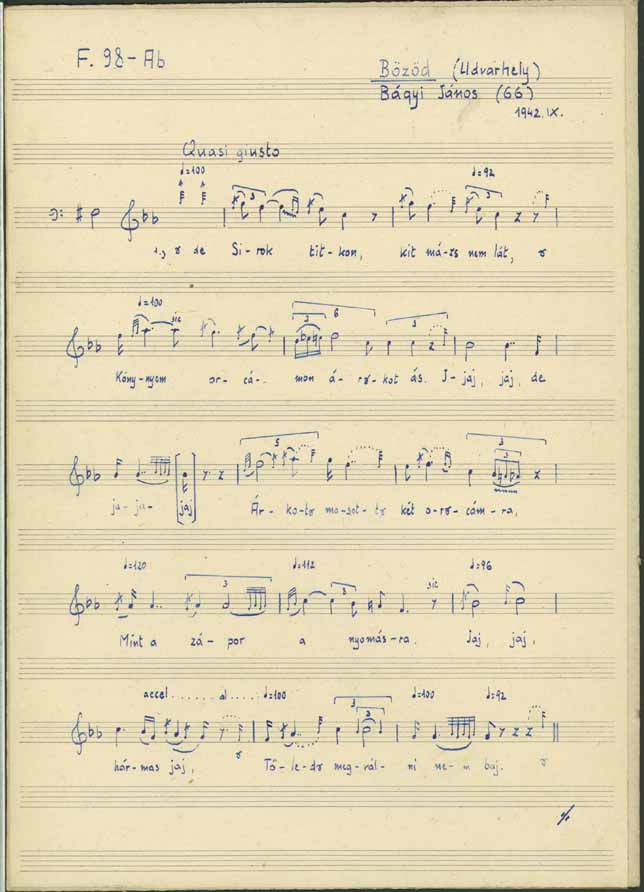 F. 98 - Ab
Bözöd (Udvarhely)
Bágyi János (66)
1942. IX.
Quasi giusto
♩=100 ♩=92
1., ɤ de Si-rok tit-kon, kit má-ɤs nem lát, ɤ
♩=100 sic
3 6 3
Köny-nyem or-cá-. mon á-rɤ-kot ás. J-jaj, jaj, de
5 3
ja-ja-jaj Ár-ko-tɤ mo-sot-tɤ két o-rɤ-cám-ra,
♩=120 ♩=112 ♩=96
3 3 sic
Mint a zá-por a nyomás-ra. Jaj, jaj,
accel........al.... ♩=100 ♩=100 ♩=92
3 3
hár-mas jaj, ɤ Tő-le-dɤ meg-vál-ni ne-m baj. ɤ